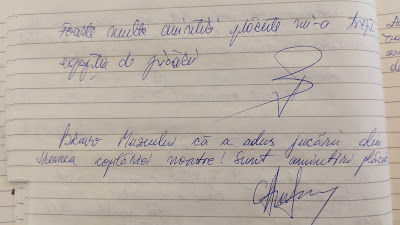 Foarte multe amintiri plăcute mi-a trezit
expoziția de jucării
Bravo Muzeului că a adus jucării din
vremea copilăriei noastre! Sunt amintiri plăcute